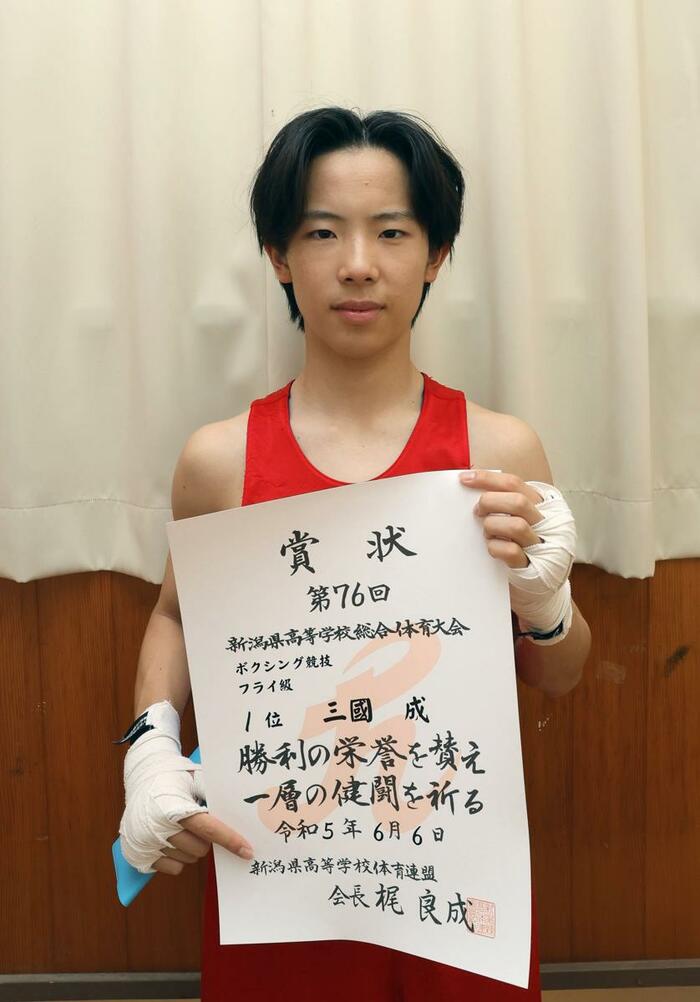 賞状
第76回
新潟県高等学校総合体育大会
ボクシング競技
フライ級
1位 三國 成
勝利の栄誉を賛え
一層の健闘を祈る
令和5年6月6日
新潟県高等学校体育連盟
会長 梶 良成